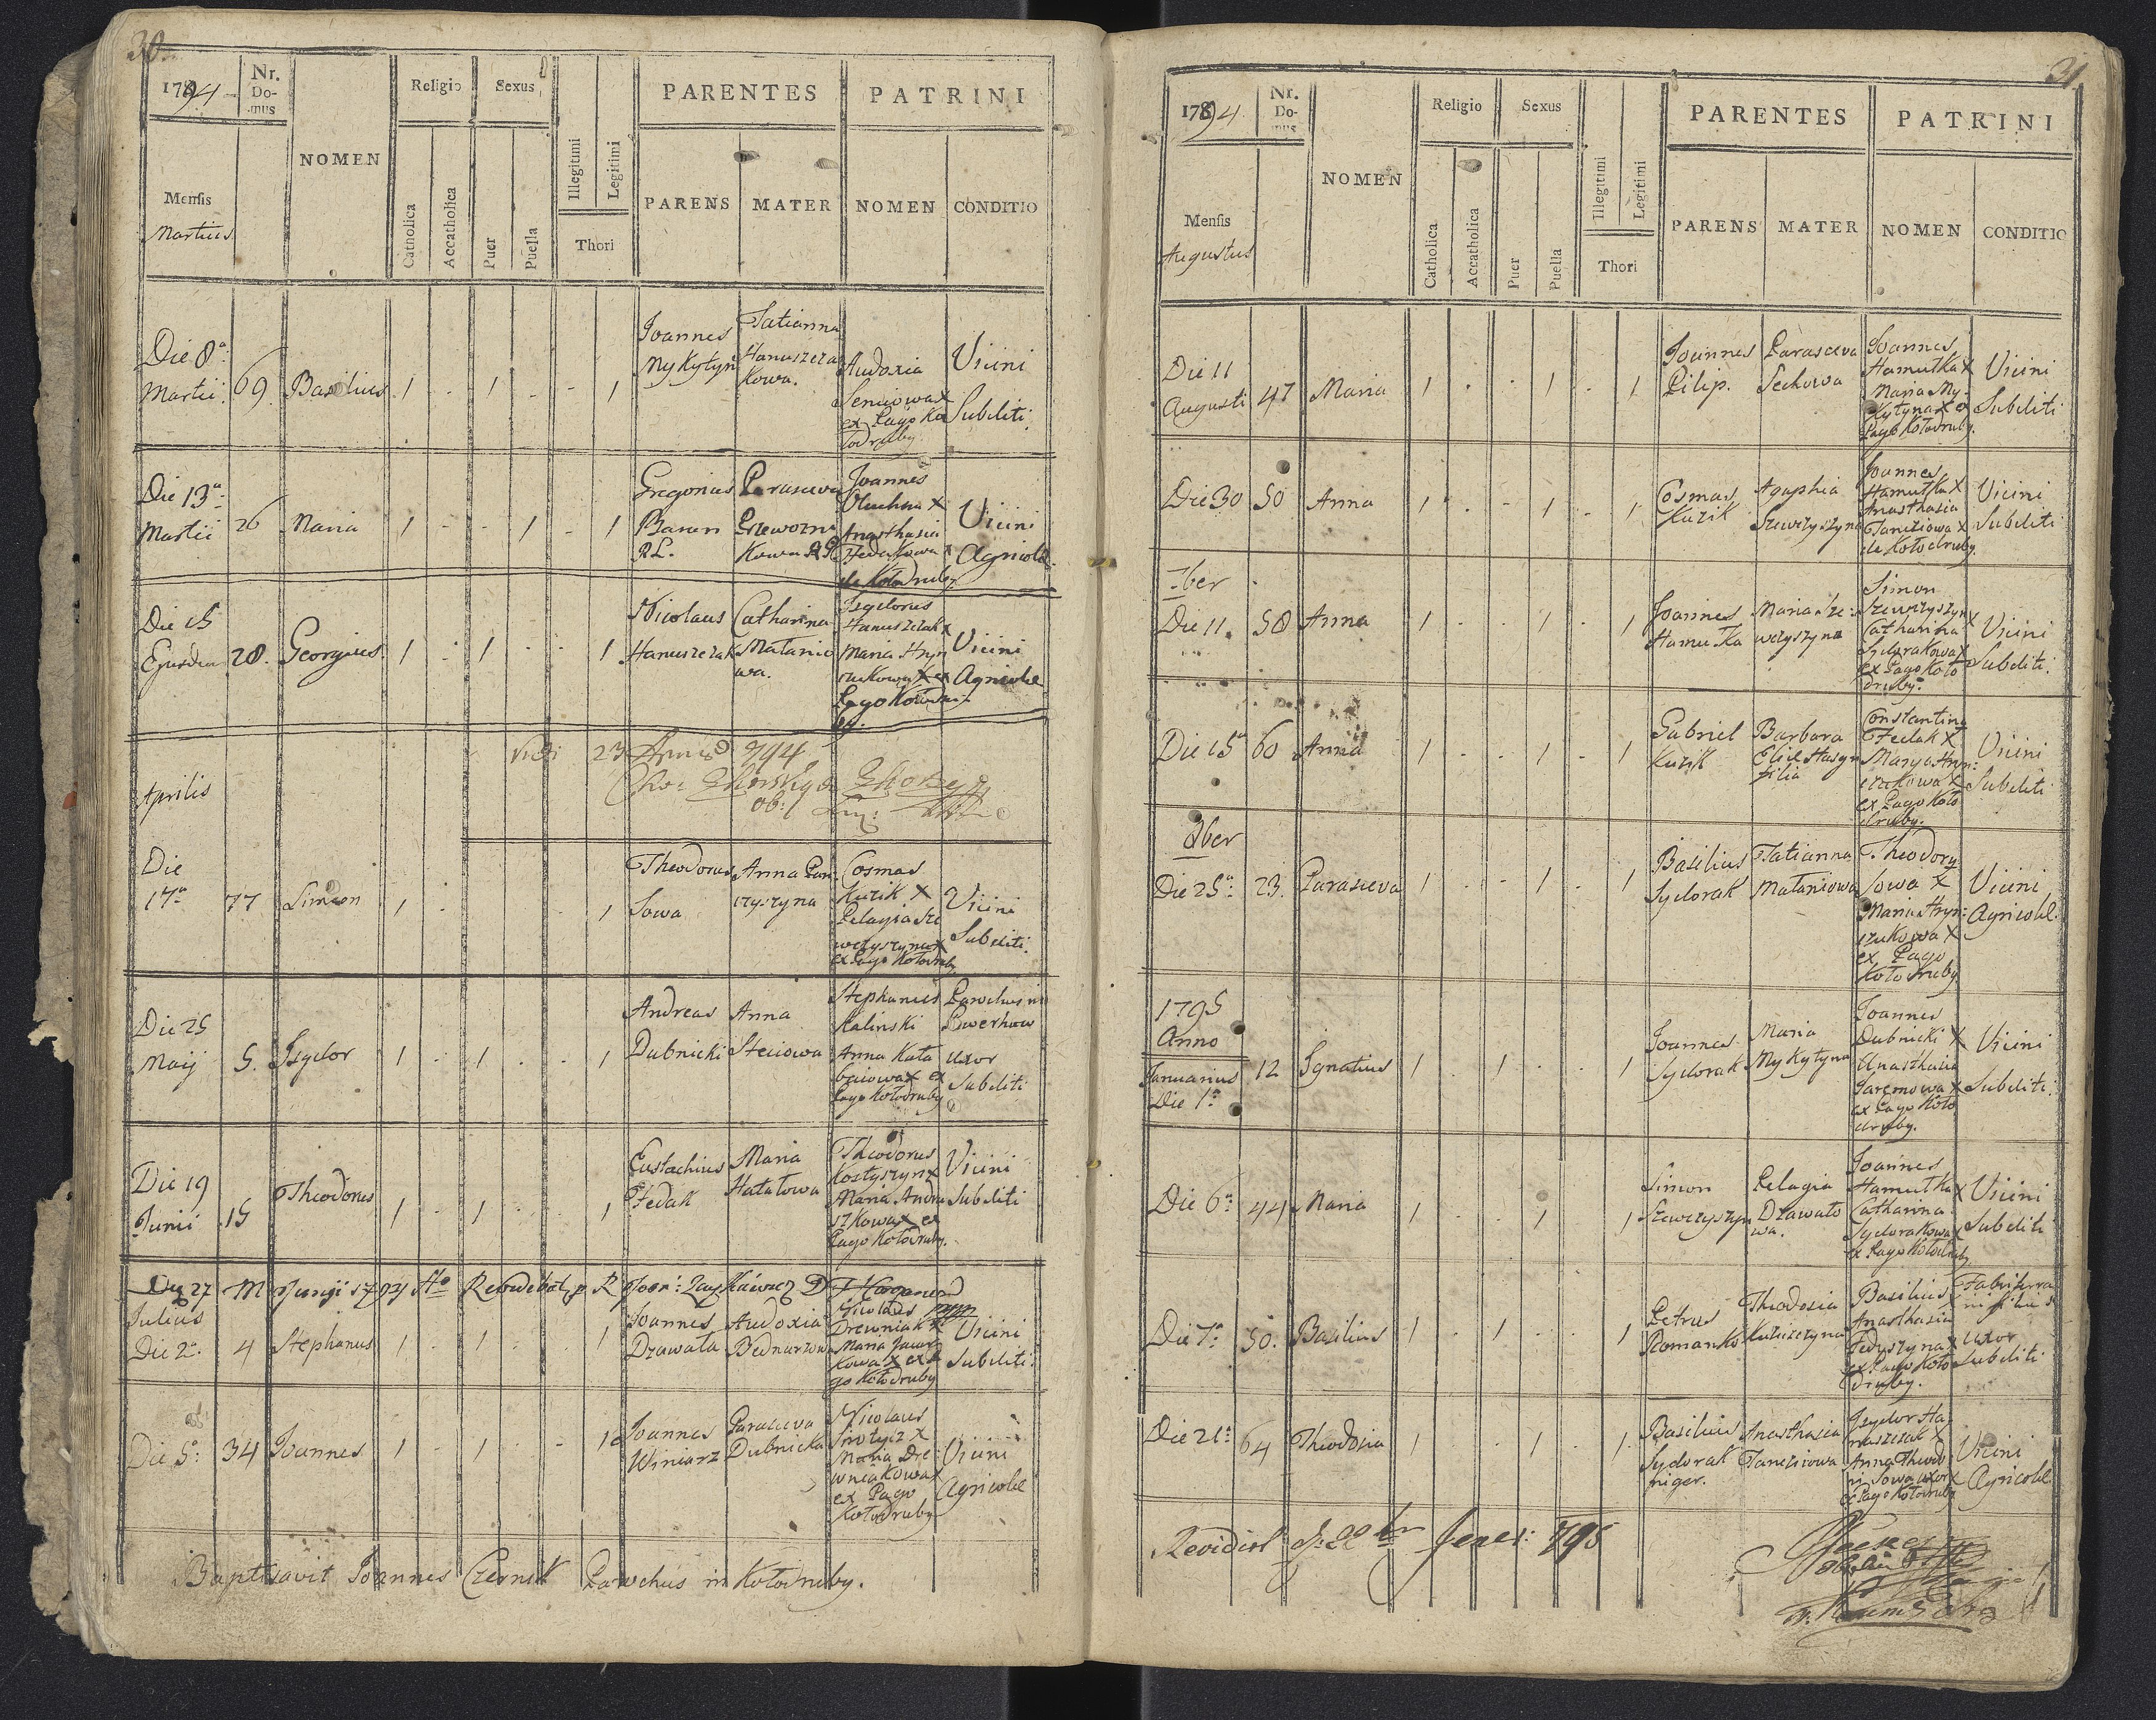 30
1794
Nr. Do-mus
NOMEN
Religio
Sexus
Illegitimi
Legitimi
PARENTES
PATRINI
Mensis
Martius
Catholica
Accatholica
Puer
Puella
Thori
PARENS
MATER
NOMEN
CONDITIO
Die 8a
Martii
69
Basilius
1 . 1 . - 1
Joannes
Mykytyn
Tatianna
Hanuszcza
kowa.
Audoxia
Seniowa X
ex Pago Ko
łodruby
Vicini
Subditi
Die 13a
Martii
26
Maria
1 - - 1 - 1
Gregorius
Baran
R.L.
Parasceva
Joannes
Anasthasia
de Kołodruby
Vicini
Agricolae
Die 15
Ejusdem
28.
Georgius
1 . 1 . . 1
Nicolaus
Hanuszczak
Catharina
Mataniо
wa.
Isydorus
Hanuszczak X
Maria Hryn
czukowa X ex
Pago Kołodru
by.
Vicini
Agricolae
Aprilis
Vidi 23 794
Die
17a
77
Simeon
1 . . . 1
Theodorus
Sowa
Anna Pan
czyszyna
Cosmas
Kuzik X
Pelagia Sze
wczyszyna X
ex Pago Kołodruby
Vicini
Subditi
Die 25
Maij
5.
Isydor
1 . 1 . . 1
Andreas
Dubnicki
Anna
Steciowa
Stephanus
Kalinski
Anna Kata
baiowa X ex
Pago Kołodruby
Parochus in
Powerhow
uxor
Subditi
Die 19
Junii
15
Theodorus
1 . 1 . . 1
Eustachius
Fedak
Maria
Hatałowa
Theodorus
Kostyszyn X
Maria Andru
szkowa X ex
Pago Kołodruby.
Vicini
Subditi
Die 27 M Junji 1794
Julius
Die 2a.
4
Stephanus
1 . 1 . . 1
Joannes
Dzawała
Audoxia
Bednarzowa
Nicolaus
Drewniak X
Maria Jawor
kowa X ex Pa
go Kołodruby
Vicini
Subditi
Die 5a:
34
Joannes
1 . 1 . - 1
Joannes
Winiarz
Parasceva
Dubnicka
Nicolaus
Sirotycz X
Maria Dre
wniakowa X
ex Pago
Kołodruby
Vicini
Agricolae
Baptisavit Joannes Czesnik Parochus in Kołodruby.
31
1794
Nr. Do-mus
NOMEN
Religio
Sexus
Illegitimi
Legitimi
PARENTES
PATRINI
Mensis
Augustus
Catholica
Accatholica
Puer
Puella
Thori
PARENS
MATER
NOMEN
CONDITIO
Die 11
Augusti
47
Maria
1 . . 1 . 1
Joannes
Pilip.
Parasceva
Seckowa
Joannes
Hamutka X
Maria My
kytyna X ex
Pago Kołodruby.
Vicini
Subditi
Die 30
50
Anna
1 . . 1 . 1
Cosmas
Kuzik
Agaphia
Szewczyszyna
Joannes
Hamutka X
Anasthasia
Tanciowa X
de Kołodruby
Vicini
Subditi
7ber
Die 11.
58
Anna
1 . . 1 . 1
Joannes
Hamutka
Maria Sze
wczyszyna
Simon
Szewczyszyn X
Catharina
Sydorakowa X
ex Pago Koło
druby.
Vicini
Subditi.
Die 15a
60
Anna
1 . . 1 . 1
Gabriel
Kuzik
Barbara
filia
Constantinus
Fedak X
Marya Hryn:
czukowa X
ex Pago Koło
druby.
Vicini
Subditi
8ber
Die 25a:
23.
Parasceva
1 . . 1 . 1
Basilius
Sydorak
Tatianna
Mataniowa
Theodorus
Sowa X
Maria Hryn:
czukowa X
ex Pago
Kołodruby
Vicini
Agricolae
1795
Anno
Januarius
Die 1a
12
Ignatius
1 . 1 . . 1
Joannes
Sydorak
Maria
Mykytyna
Joannes
Dubnicki X
Anasthasia
Jaremowa X
ex Pago Koło
druby.
Vicini
Subditi.
Die 6a:
44
Maria
1 . . 1 1
Simon
Szewczyszyn
Pelagia
Dzawało
wa.
Joannes
Hamutka X
Catharina
Sydorakowa X
ex Pago Kołodruby
Vicini
Subditi
Die 7a
50.
Basilius
1 . 1 . . 1
Petrus
Romanko
Theodosia
Basilius
Anasthasia
Fedyszyna X
ex Pago Koło
druby.
uxor
Subditi
Die 21a:
64
Theodosia
1 . . 1 . 1.
Basilius
Sydorak
niger.
Anasthasia
Tanciowa
Isydor Ha
nuszczak X
Anna Theodo
ri Sowa uxor X
ex Pago Kołodruby
Vicini
Agricolae
795